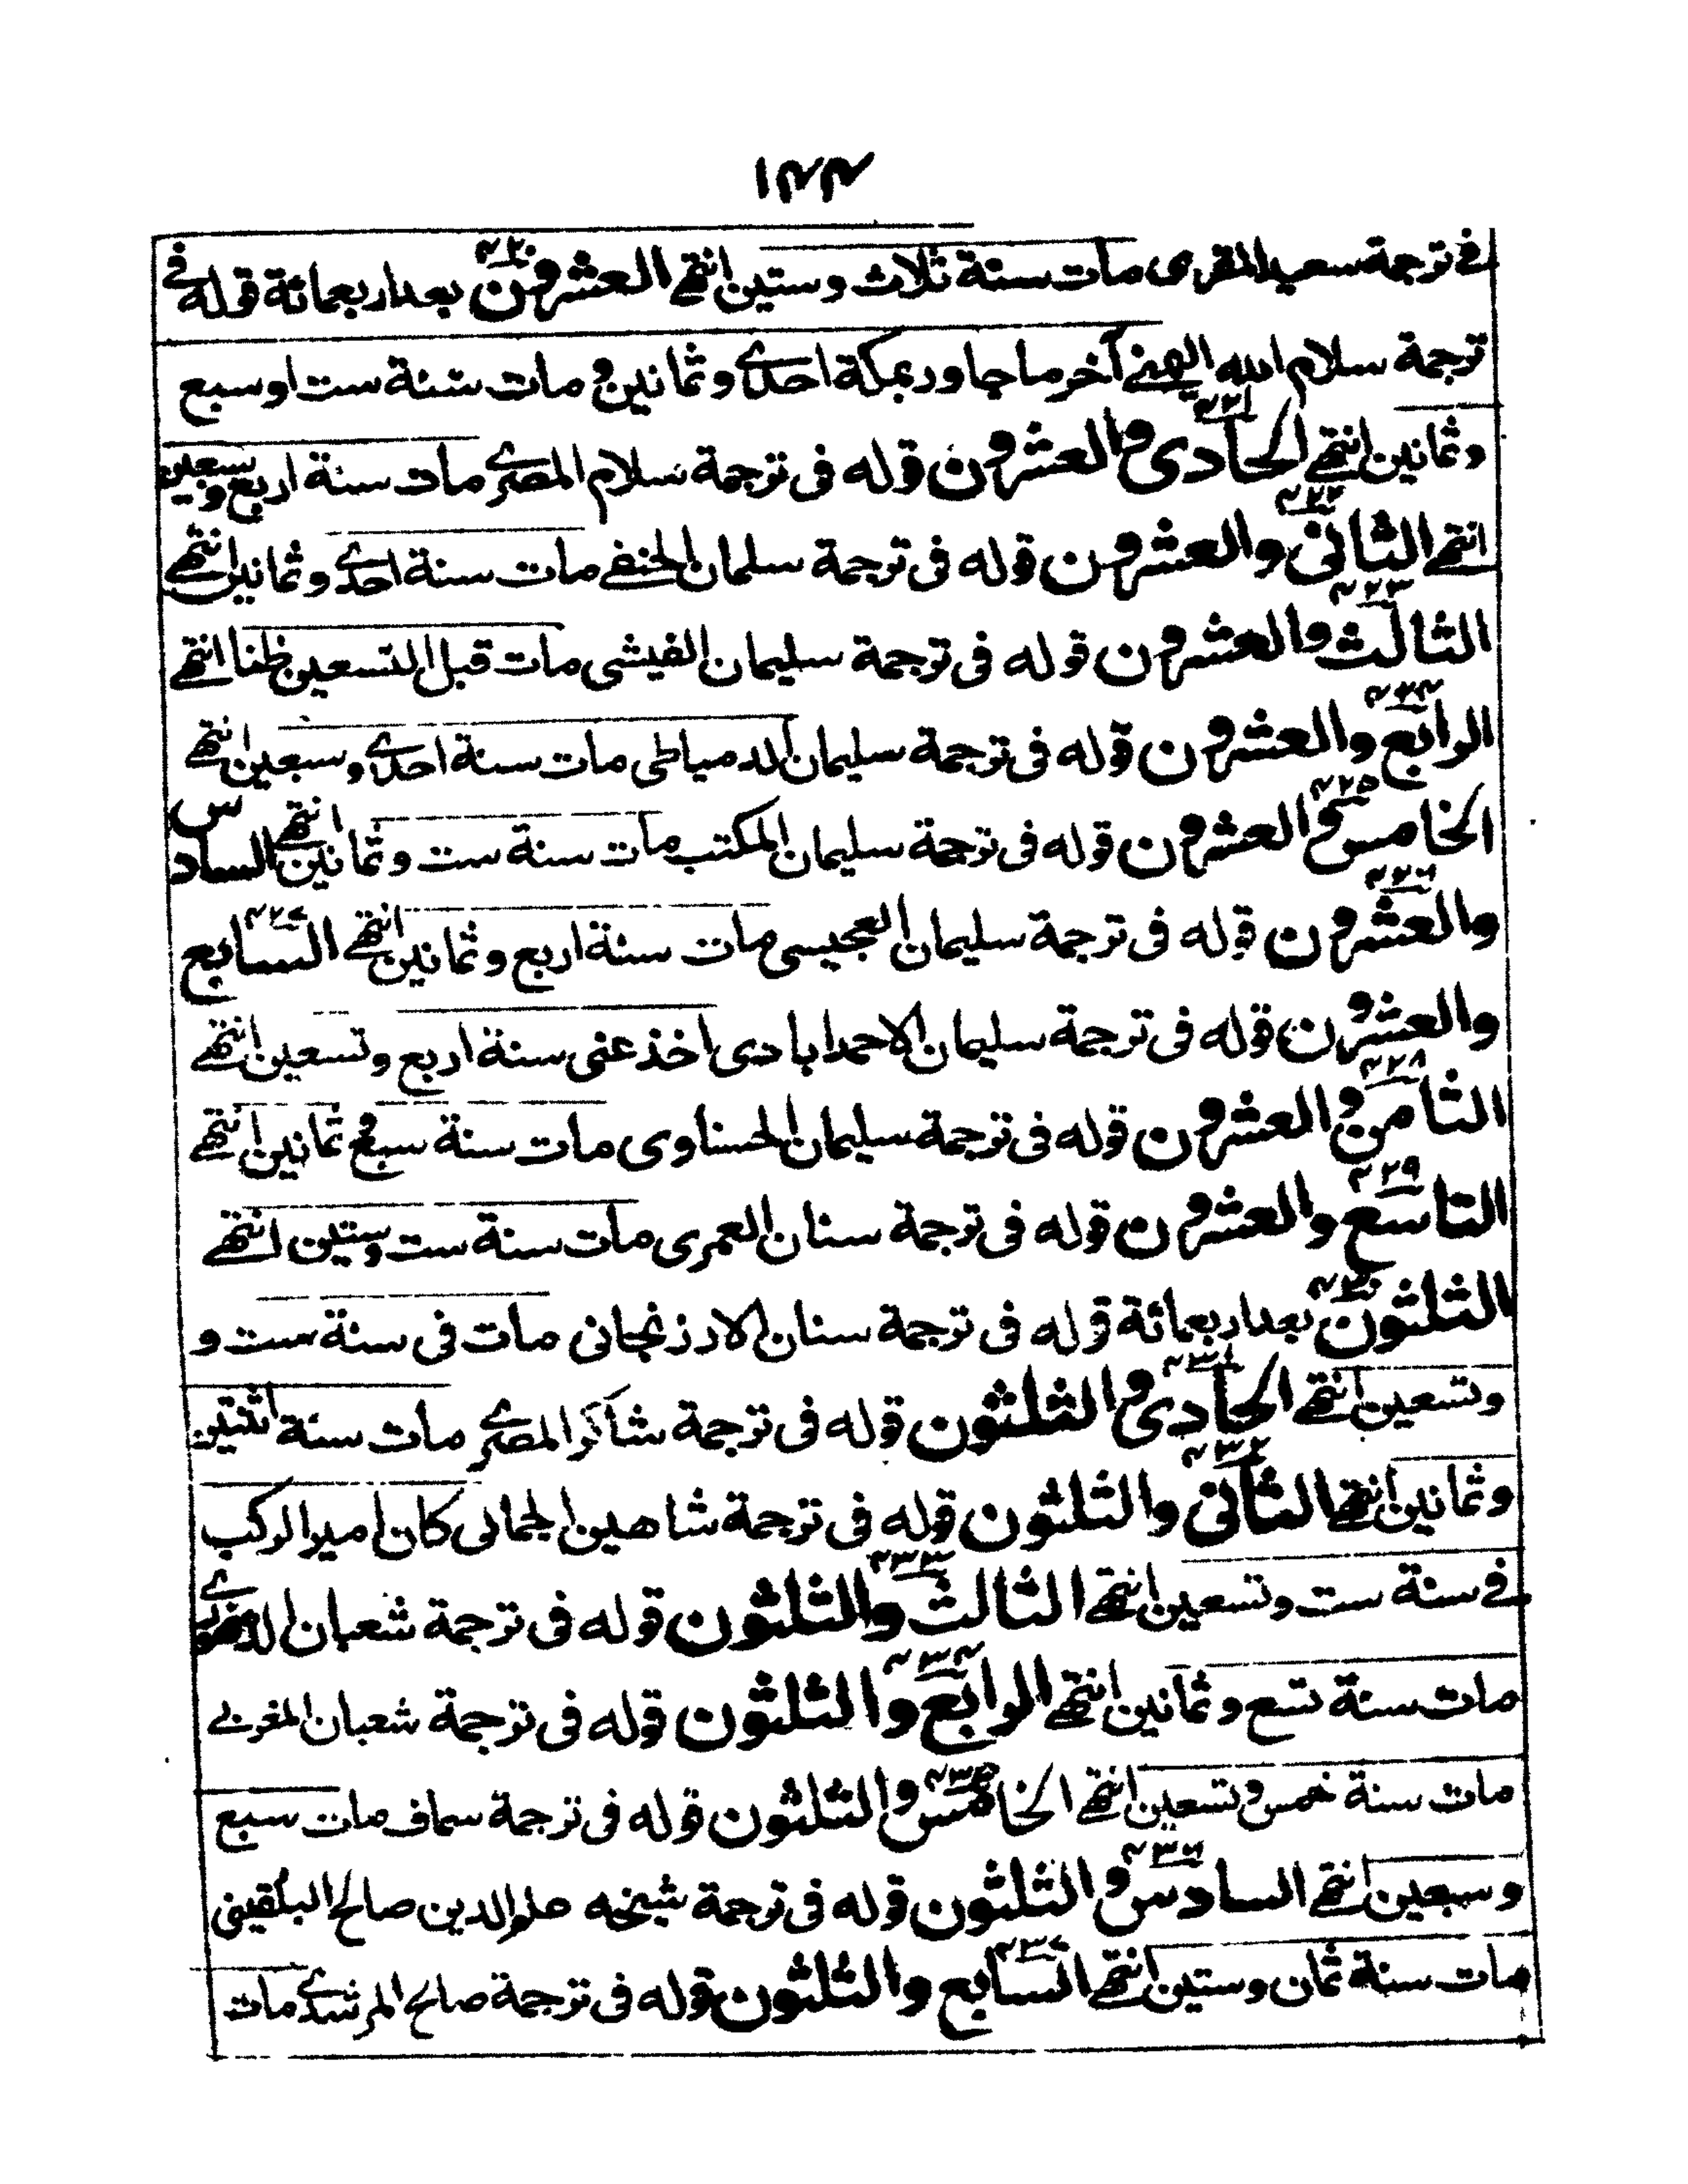 ١٤٤
في ترجمة سعيد المقرى مات سنة ثلاث وستين انتهے العشرون ٤٢٠ بعد اربعمائة قوله في
ترجمة سلام الله آخر ما جاور بمكة احدے وثمانين ومات سنة ست او سبع
وثمانين انتهے الحادى والعشرون ٤٢١ قوله فى ترجمة سلام المصرے مات سنة اربع وسبعين
انتهے الثانى والعشرون ٤٢٢ قوله فى ترجمة سلمان الحنفے مات سنة احدے وثمانين انتهے
الثالث والعشرون ٤٢٣ قوله فى ترجمة سليمان الفيشى مات قبل التسعين ظنا انتهے
الرابع والعشرون ٤٢٤ قوله فى ترجمة سليمان الدمياطى مات سنة احدے وسبعين انتهے
الخامس والعشرون ٤٢٥ قوله فى ترجمة سليمان المكتب مات سنة ست وثمانين انتهے السادس
والعشرون ٤٢٦ قوله فى ترجمة سليمان العجيسى مات سنة اربع وثمانين انتهے السابع ٤٢٧
والعشرون قوله فى ترجمة سليمان الاحمدابادى اخذ عنى سنة اربع وتسعين انتهے
الثامن والعشرون ٤٢٨ قوله فى ترجمة سليمان الحسناوى مات سنة سبع وثمانين انتهے
التاسع والعشرون ٤٢٩ قوله فى ترجمة سنان العمرى مات سنة ست وستين انتهے
الثلثون ٤٣٠ بعد اربعمائة قوله فى ترجمة سنان الارزنجانى مات فى سنة ست و
وتسعين انتهے الحادى والثلثون ٤٣١ قوله فى ترجمة شاكر المصرے مات سنة اثنتين
وثمانين انتهے الثانى والثلثون ٤٣٢ قوله فى ترجمة شاهين الجمالى كان امير الركب
في سنة ست وتسعين انتهے الثالث والثلثون ٤٣٣ قوله فى ترجمة شعبان
مات سنة تسع وثمانين انتهے الرابع والثلثون ٤٣٤ قوله فى ترجمة شعبان المغربے
مات سنة خمس وتسعين انتهے الخامس والثلثون ٤٣٥ قوله فى ترجمة سماف مات سبع
وسبعين انتهے السادس والثلثون ٤٣٦ قوله فى ترجمة شيخه علم الدين صالح البلقينى
مات سنة ثمان وستين انتهے السابع والثلثون ٤٣٧ قوله فى ترجمة صالح المرشدے مات